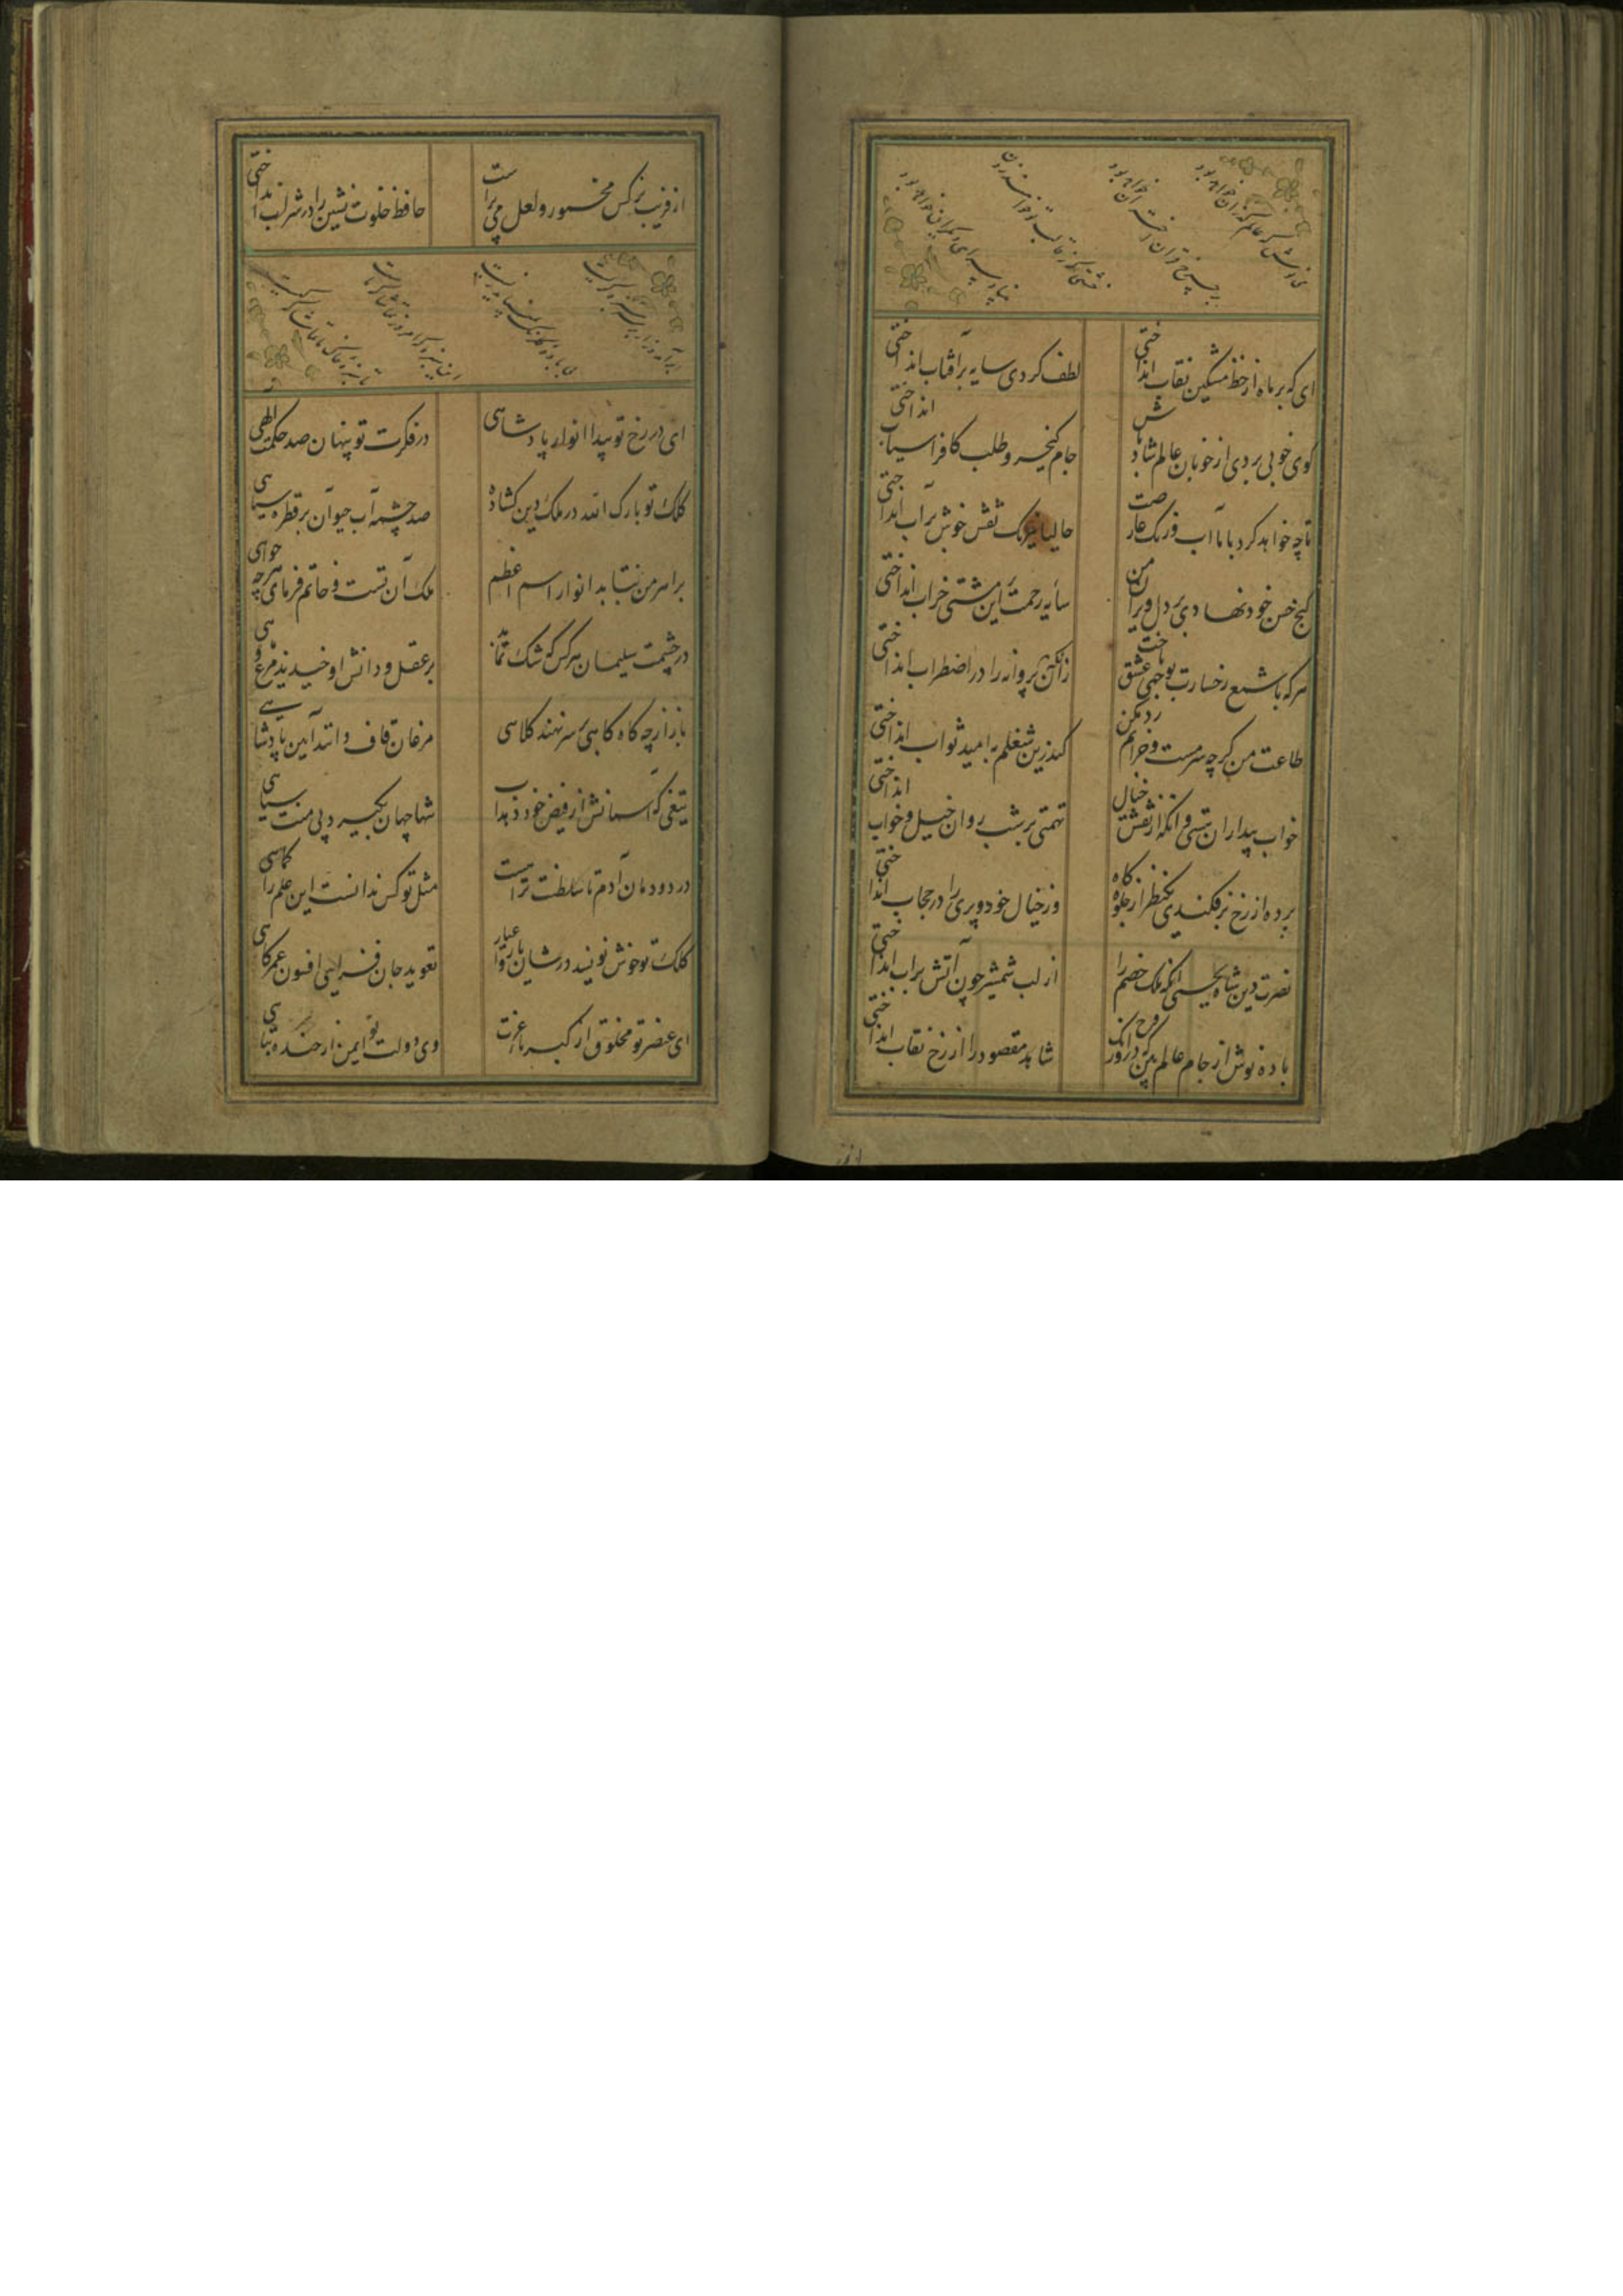 می نوش که عالم گذران خواهد بود
بر چرخ قران اختران خواهد بود
خشتی که ز قالب تو خواهند زدن
بنیاد سرای دیگران خواهد بود
ای که بر ماه از خط مشکین نقاب انداختی
لطف کردی سایه بر آفتاب انداختی
گوی خوبی بردی از خوبان عالم شاد باش
جام کیخسرو طلب کافراسیاب انداختی
تا چه خواهد کرد با ما آب و رنگ عارضت
حالیا نیرنگ نقش خوش بر آب انداختی
گنج حسن خود نهادی بر دل ویران من
سایه رحمت برین مشتی خراب انداختی
هر که با شمع رخسارت بوجهی عشق باخت
زان میان پروانه را در اضطراب انداختی
طاعت من گرچه سرمست و خرابم رد مکن
کندرین شغلم به امید ثواب انداختی
خواب بیداران ببستی وانگه از نقش خیال
تهمتی بر شب روان خیل و خواب انداختی
پرده از رخ بر فکندی یکنظر از جلوه گاه
وز خیال خود و پری را در حجاب انداختی
نصرت دین شاه یحیی آنکه ملک خصم را
از لب شمشیر چون آتش بر آب انداختی
باده نوش از جام عالم بین که در اورنگ
شاهد مقصود را از رخ نقاب انداختی
از فریب نرگس مخمور و لعل می پرست
حافظ خلوت نشین را در شراب انداختی
ابر آمد و زار بر سر سبزه گریست
بی باده گلرنگ نمی‌شاید زیست
این سبزه که امروز تماشاگه ماست
تا سبزه خاک ما تماشاگه کیست
ای در رخ تو پیدا انوار پادشاهی
در فکرت تو پنهان صد حکمت الهی
کلک تو بارک الله در ملک دین گشاده
صد چشمه آب حیوان بر قطره سیاهی
بر اهرمن نتابد انوار اسم اعظم
ملک آن تست و خاتم فرمای هرچه خواهی
در حشمت سلیمان هر کس که شک نماید
بر عقل و دانش او خندند مرغ و ماهی
باز ارچه گاه گاهی بر سر نهند کلاهی
مرغان قاف دانند آیین پادشاهی
تیغی که آسمانش از فیض خود دهد آب
تنها جهان بگیرد بی منت سپاهی
در دودمان آدم تا سلطنت تراست
مثل تو کس ندانست این علم را کماهی
کلک تو خوش نویسد در شان یار و اغیار
تعویذ جان فزایی افسون عمر کاهی
ای عنصر تو مخلوق از کبریا عزت
وی دولت تو ایمن از خنده تباهی